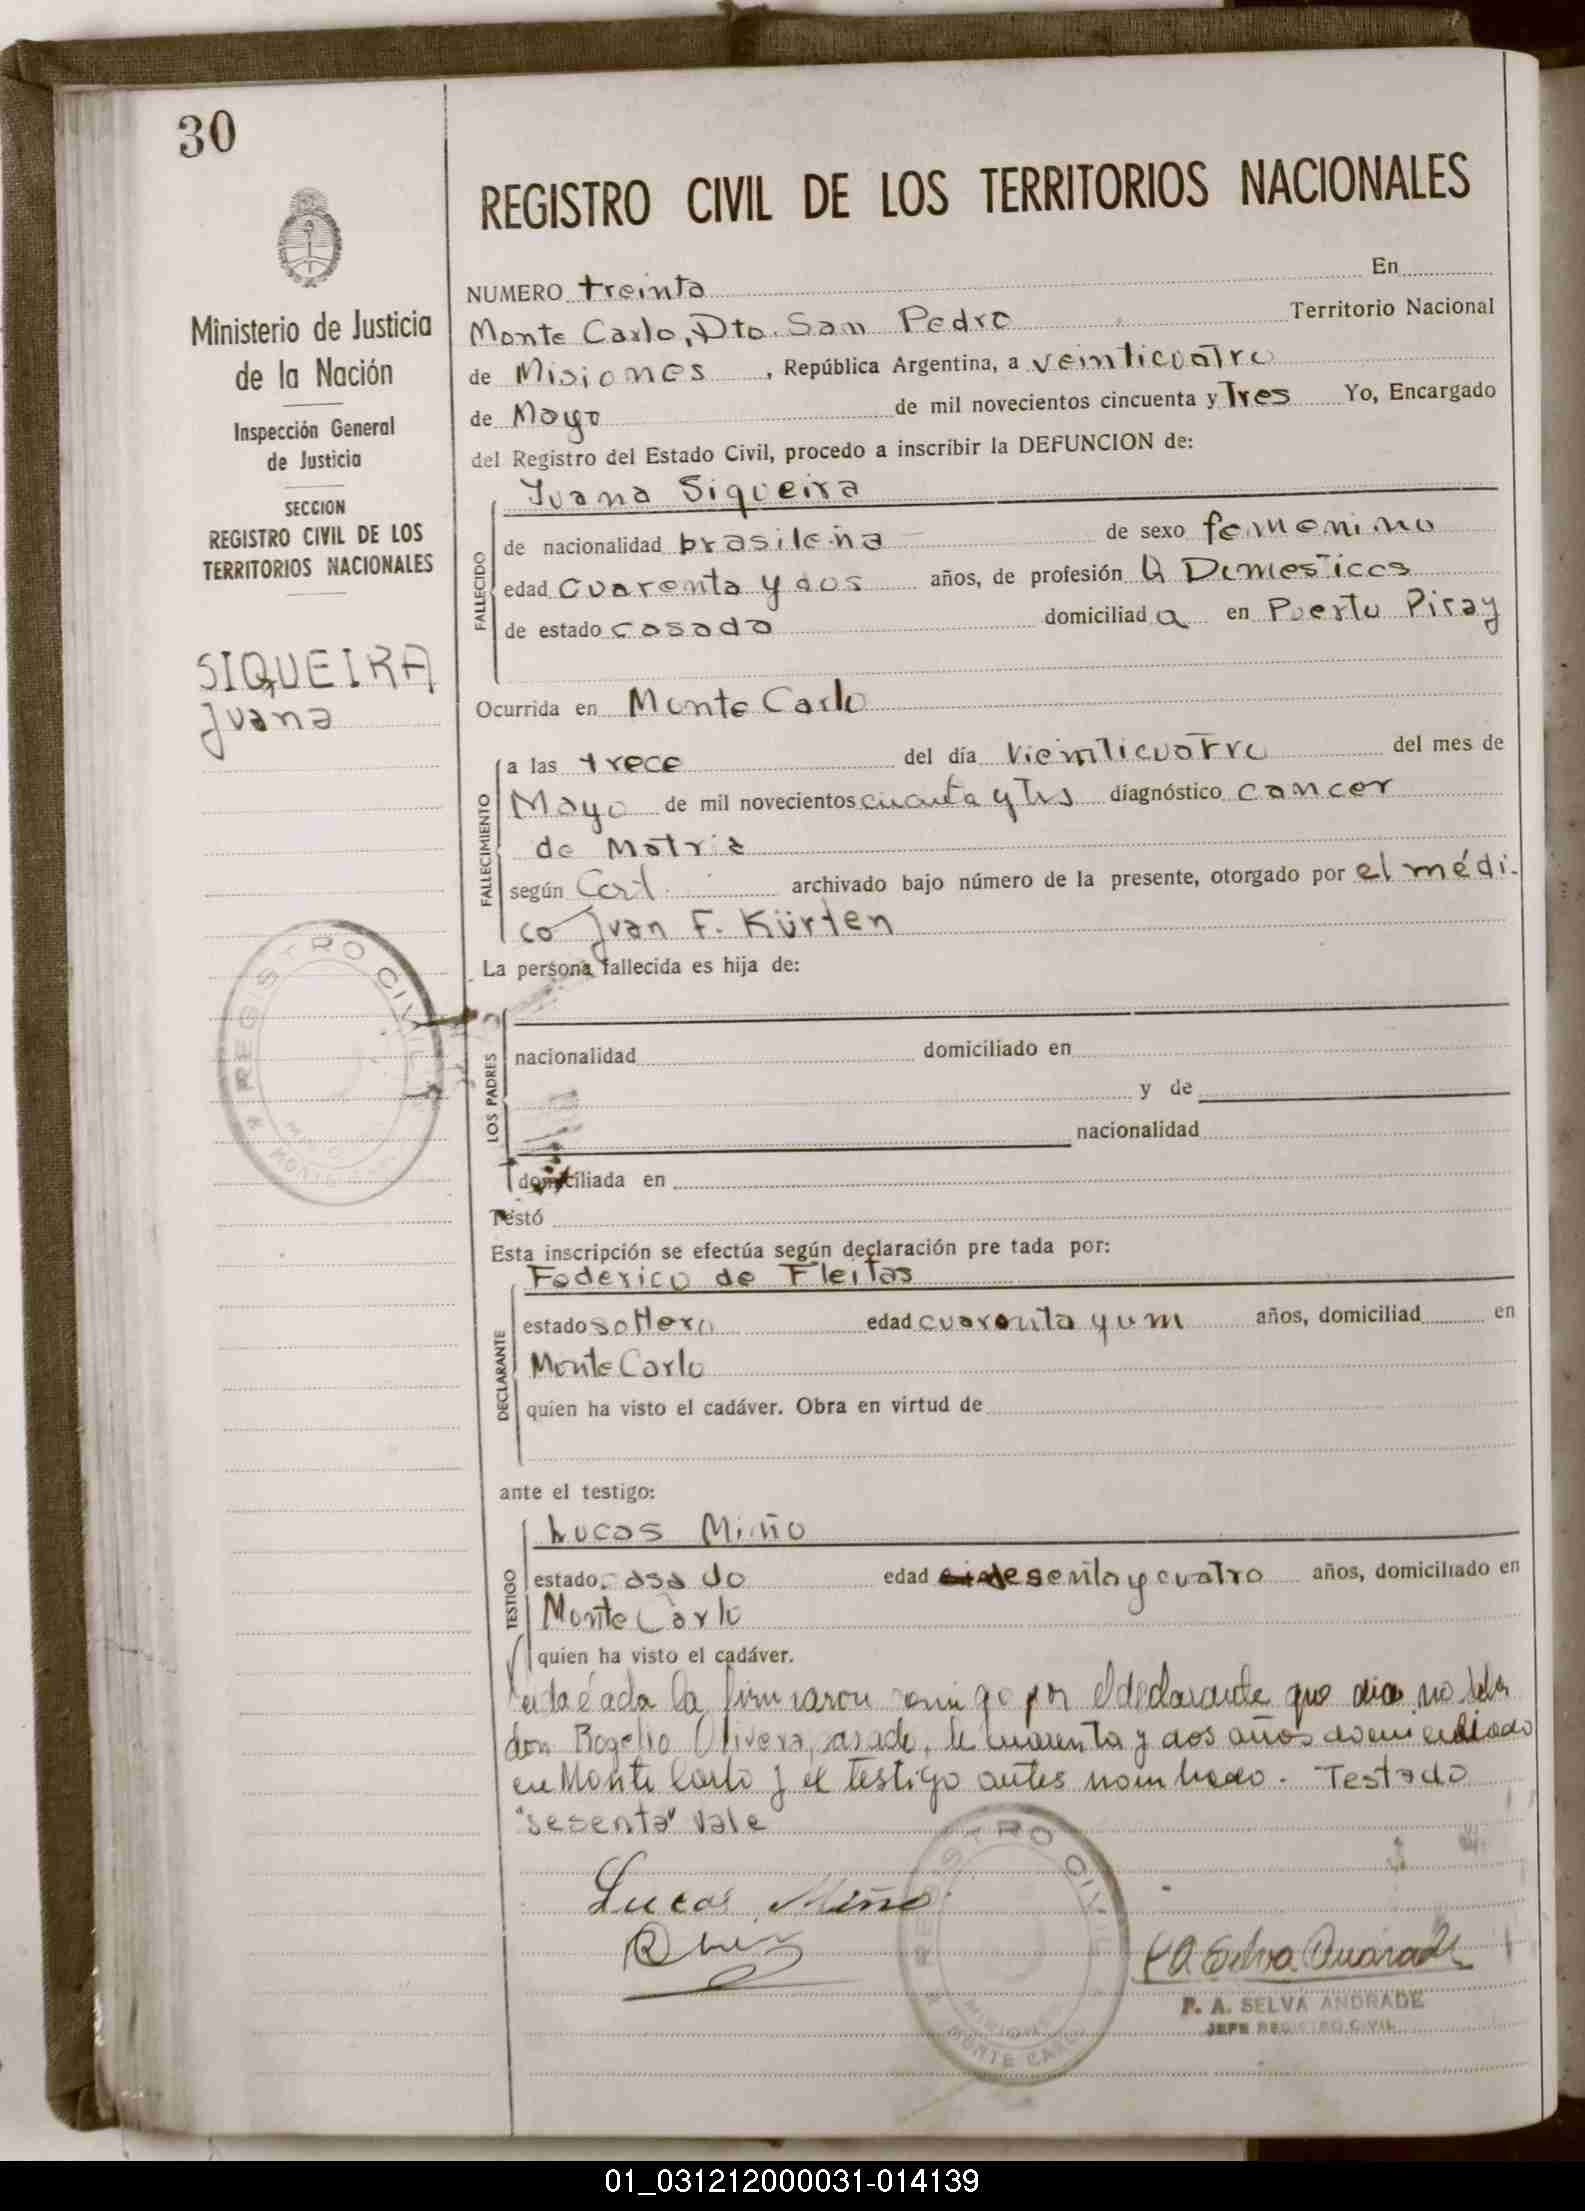 30
Ministerio de Justicia
de la Nación
Inspección General
de Justicia
SECCION
REGISTRO CIVIL DE LOS
TERRITORIOS NACIONALES
SIQUEIRA
Juana
REGISTRO CIVIL
REGISTRO CIVIL DE LOS TERRITORIOS NACIONALES
NUMERO treinta En
Monte Carlo, Dto. San Pedro Territorio Nacional
de Misiones, República Argentina, a veinticuatro
de Mayo de mil novecientos cincuenta y Tres Yo, Encargado
del Registro del Estado Civil, procedo a inscribir la DEFUNCION de:
Juana Siqueira
FALLECIDO
de nacionalidad brasileña de sexo femenino
edad cuarenta y dos años, de profesión Q Domesticos
de estado casada domiciliad a en Puerto Piray
Ocurrida en Monte Carlo
FALLECIMIENTO
a las trece del día veinticuatro del mes de
Mayo de mil novecientos cincuenta y tres diagnóstico cancer
de Matriz
según Cert. archivado bajo número de la presente, otorgado por el médi-
co Juan F. Kürten
La persona fallecida es hija de:
LOS PADRES
nacionalidad domiciliado en
y de
nacionalidad
domiciliada en
Testó
Esta inscripción se efectúa según declaración pre tada por:
Federico de Fleitas
DECLARANTE
estado soltero edad cuarenta y un años, domiciliad en
Monte Carlo
quien ha visto el cadáver. Obra en virtud de
ante el testigo:
Lucas Miño
TESTIGO
estado casado edad sesenta y cuatro años, domiciliado en
Monte Carlo
quien ha visto el cadáver.
Leida el acta la firmaron conmigo por el declarante que dice no saber
don Rogelio Olivera, casado, de cuarenta y dos años domiciliado
en Monte Carlo y el testigo antes nombrado. Testado
"sesenta" vale
Lucas Miño
REGISTRO CIVIL
MISIONES
MONTE CARLO
P. A. SELVA ANDRADE
JEFE REGISTRO CIVIL
01_031212000031-014139